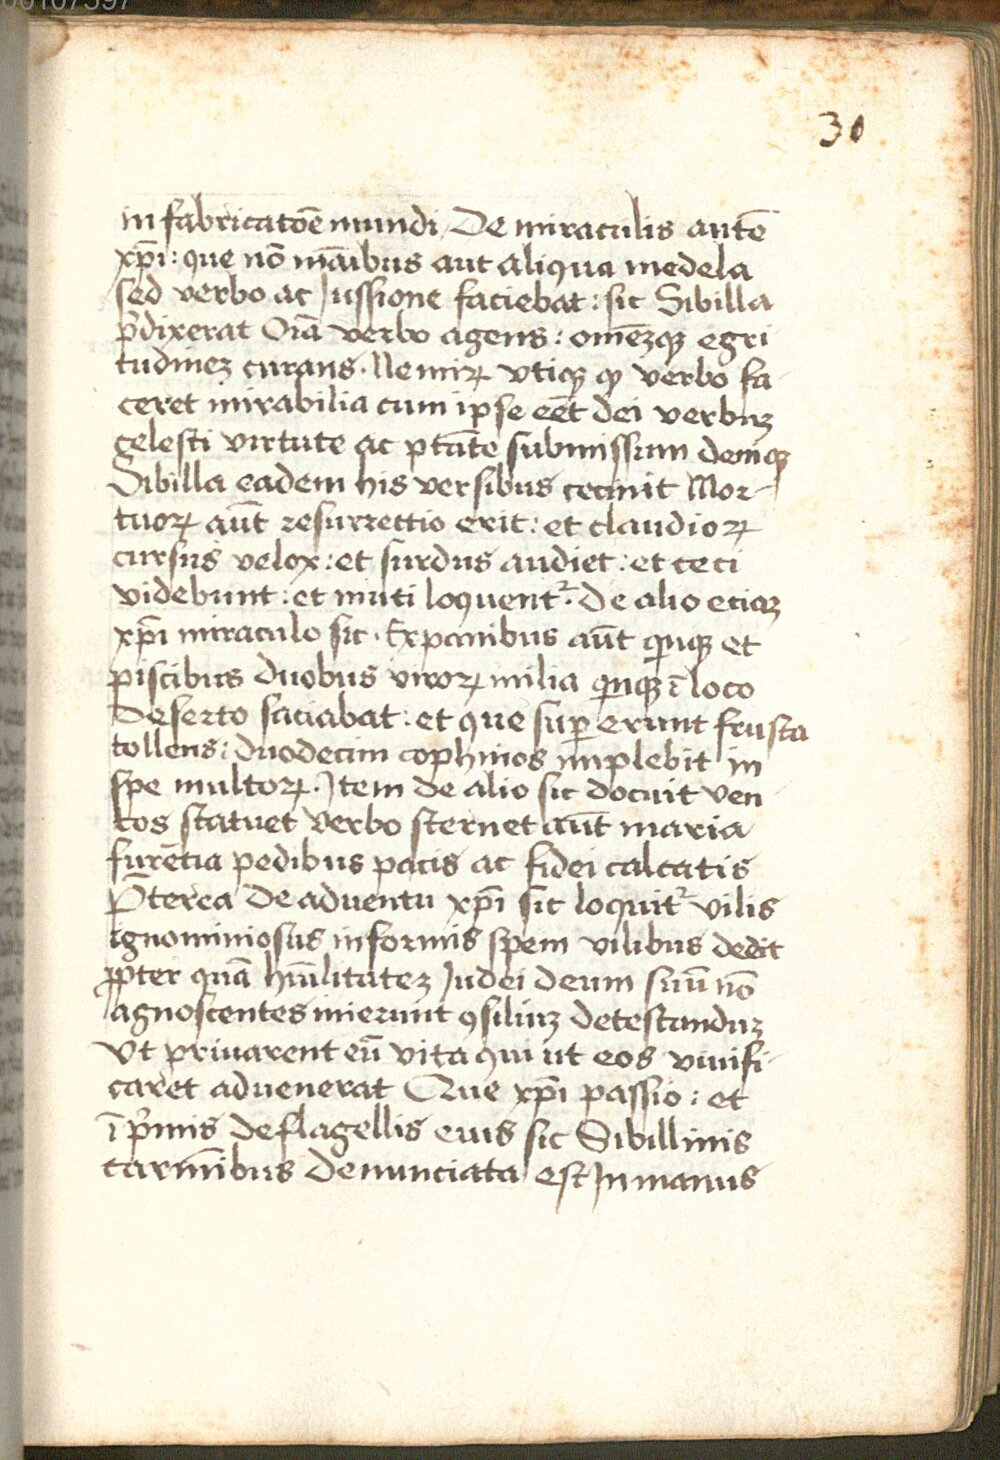 00107597
30
in fabricatoē mundi De miraculis autē
xpī: que nō māibus aut aliqua medela
sed verbo ac Jussione faciebat: sic Sibilla
p̄dixerat Oīa verbo agens: omēzqꝫ egri
tudinez curans. Ne mirꝝ vtiqꝫ ꝙ verbo fa
ceret mirabilia cum ipse eēt dei verbuz
celesti virtute ac ptāte submissum deniqꝫ
Sibilla eadem his versibus cecinit Mor-
tuoꝝ aūt resurrectio erit: et claudioꝝ
cursus velox: et surdus audiet: et ceci
videbunt: et muti loquent᷑. De alio etiaz
xpī miraculo sic. Ex panibus aūt quīqꝫ et
piscibus duobus viroꝝ milia quīqꝫ ī loco
Deserto saciabat: et que suꝑ erunt frusta
tollens: duodecim cophinos implebit in
spe multoꝝ. Jtem de alio sic docuit ven
tos statuet verbo sternet aūt maria
furētia pedibus pacis ac fidei calcatis
P̄terea De aduentu xpī sic loquit᷑ vilis
ignominiosus informis spem vilibus dedit
ꝓpter quā hūilitatez Judei deum suū nō
agnoscentes inierunt ꝯsiliuz detestanduz
Vt priuarent eū vita qui ut eos viuifi-
caret aduenerat Que xpī passio: et
ī p̄mis de flagellis eius sic Sibillinis
carmībus denunciata est Jn manus